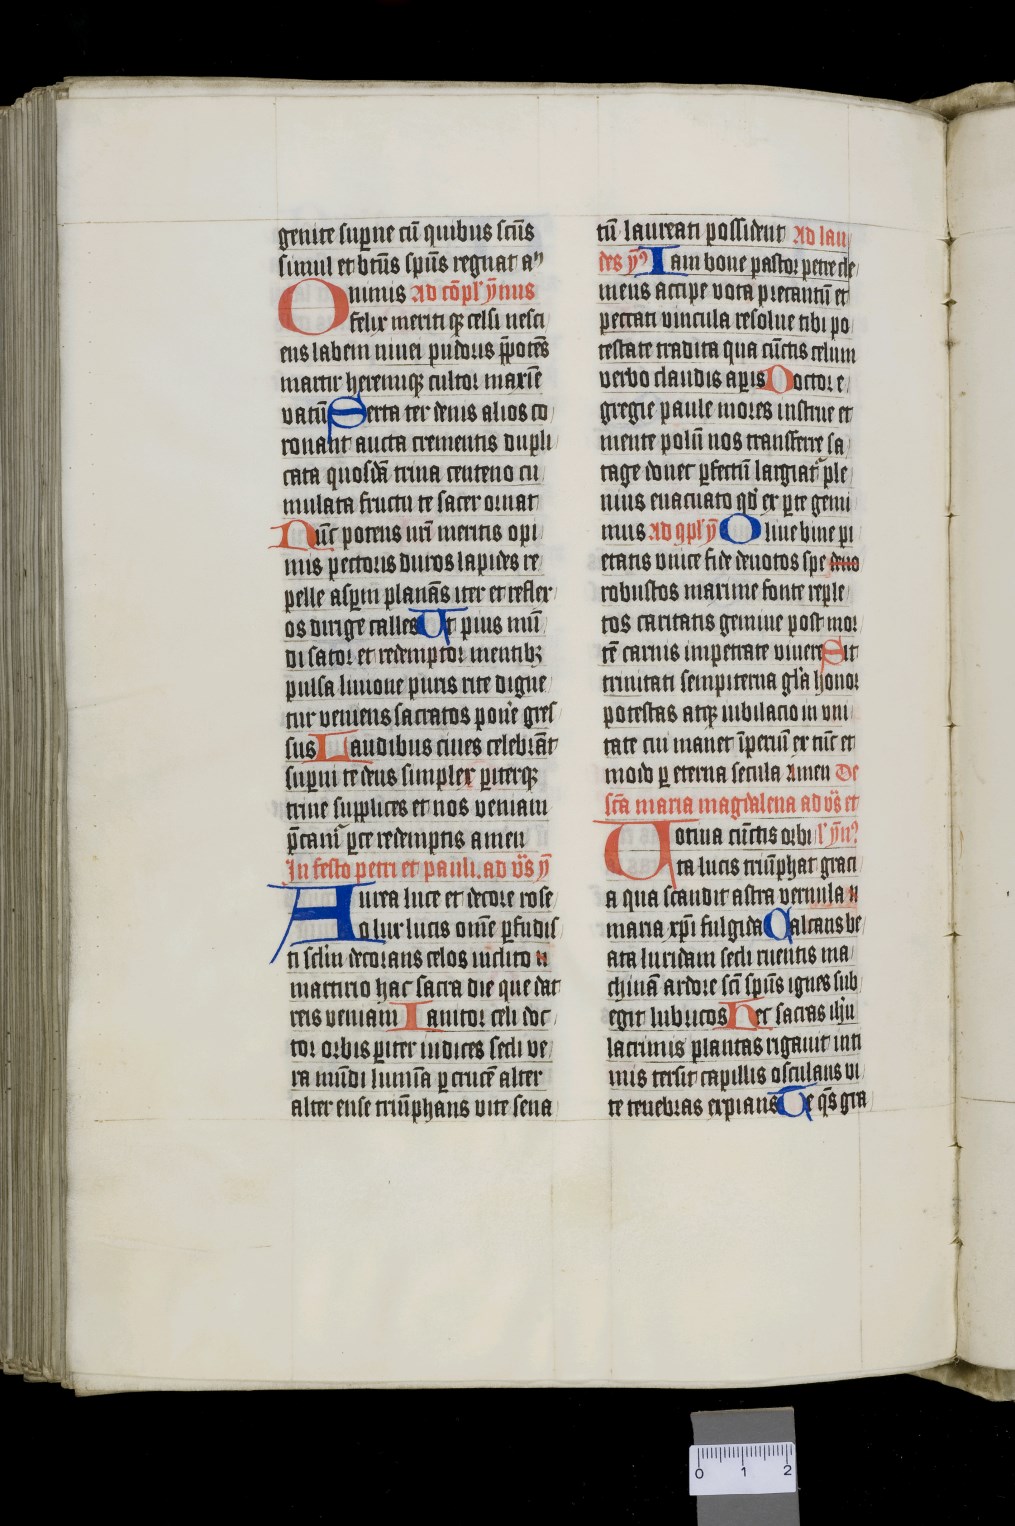 genite supne cū quibus sctūs
simul et btūs spūs regnat a⁹
O nimis ad cōpl' ȳnnus
felix meriti qꝫ celsi nesci
ens labem niuei pudoris p̄potēs
martir heremiqꝫ cultor maxīe
vatū Serta ter denis alios co
ronant aucta crementis dupli
cata quosdā trina centeno cu
mulata fructu te sacer ornat
Nūc potens nrī meritis opi
mis pectoris duros lapides re
pelle aspm planās iter et reflex
os dirige calles Ut pius mūi
di sator et redemptor mentibꝫ
pulsa liuione puris rite digne
tur veniens sacratos pon'e gres
sus Laudibus ciues celebrāt
supni te deus simplex piterqꝫ
trine supplices et nos veniam
p̄cam᷑ pce redemptis amen
In festo petri et pauli. ad v̄s ȳ
Aurea luce et decore rose
o lux lucis om̄e pfudis
ti sclm decorans celos inclito
martirio hac sacra die que dat
reis veniam Ianitor celi doc
tor orbis piter iudices secli ve
ra mūdi lumīa p crucē alter
alter ense triūphans vite sena
tū laureati possident ad lau
des ȳ⁹ Iam bone pastor petre cle
mens accipe vota precantiū et
peccati vincula resolue tibi po
testate tradita qua cūctis celum
verbo claudis apis Doctor e
gregie paule mores instrue et
mente polū nos transferre sa
tage donec pfectū largiat᷑ ple
nius euacuato qd' ex pte geri
mus ad ɔpl' ȳ Oliue bine pi
etatis vnice fide deuotos spe deuo
robustos maxime fonte reple
tos caritatis gemine post mor
tē carnis impetrate viuere Sit
trinitati sempiterna gl'a honor
potestas atqꝫ iubilacio in vni
tate cui manet īperiū ex tūc et
modo p eterna secula Amen De
scā maria magdalena ad v̄s et
l' ȳn⁹
Uotiua cūctis orbi
ta lucis triūphat graci
a qua scandit astra vernula
maria xpī fulgida Calcans be
ata luridam secli ruentis ma
chinā ardore scī spūs ignes sub
egit lubricos Hec sacras ihū
lacrimis plantas rigauit inti
mis tersit capillis osculans vi
te tenebras expians Te q̄s gra